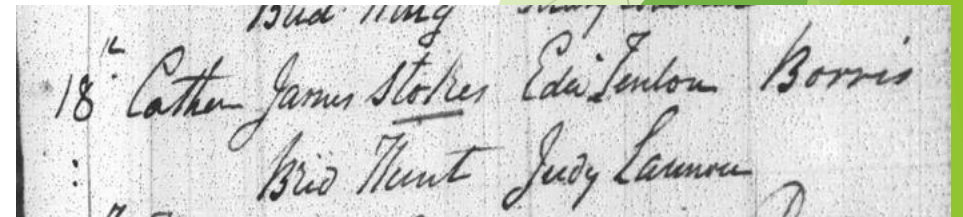 Brid King Mary
18th Cathen James Stokes Edw Fenlon Borris
: Brid Hunt Judy Lannon